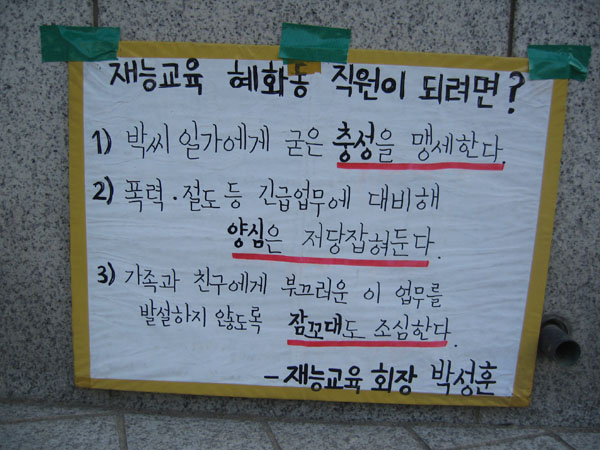 재능교육 혜화동 직원이 되려면?
1) 박씨 일가에게 굳은 충성을 맹세한다.
2) 폭력·절도 등 긴급업무에 대비해
양심은 저당잡혀둔다.
3) 가족과 친구에게 부끄러운 이 업무를
발설하지 않도록 잠꼬대도 조심한다.
- 재능교육 회장 박성훈